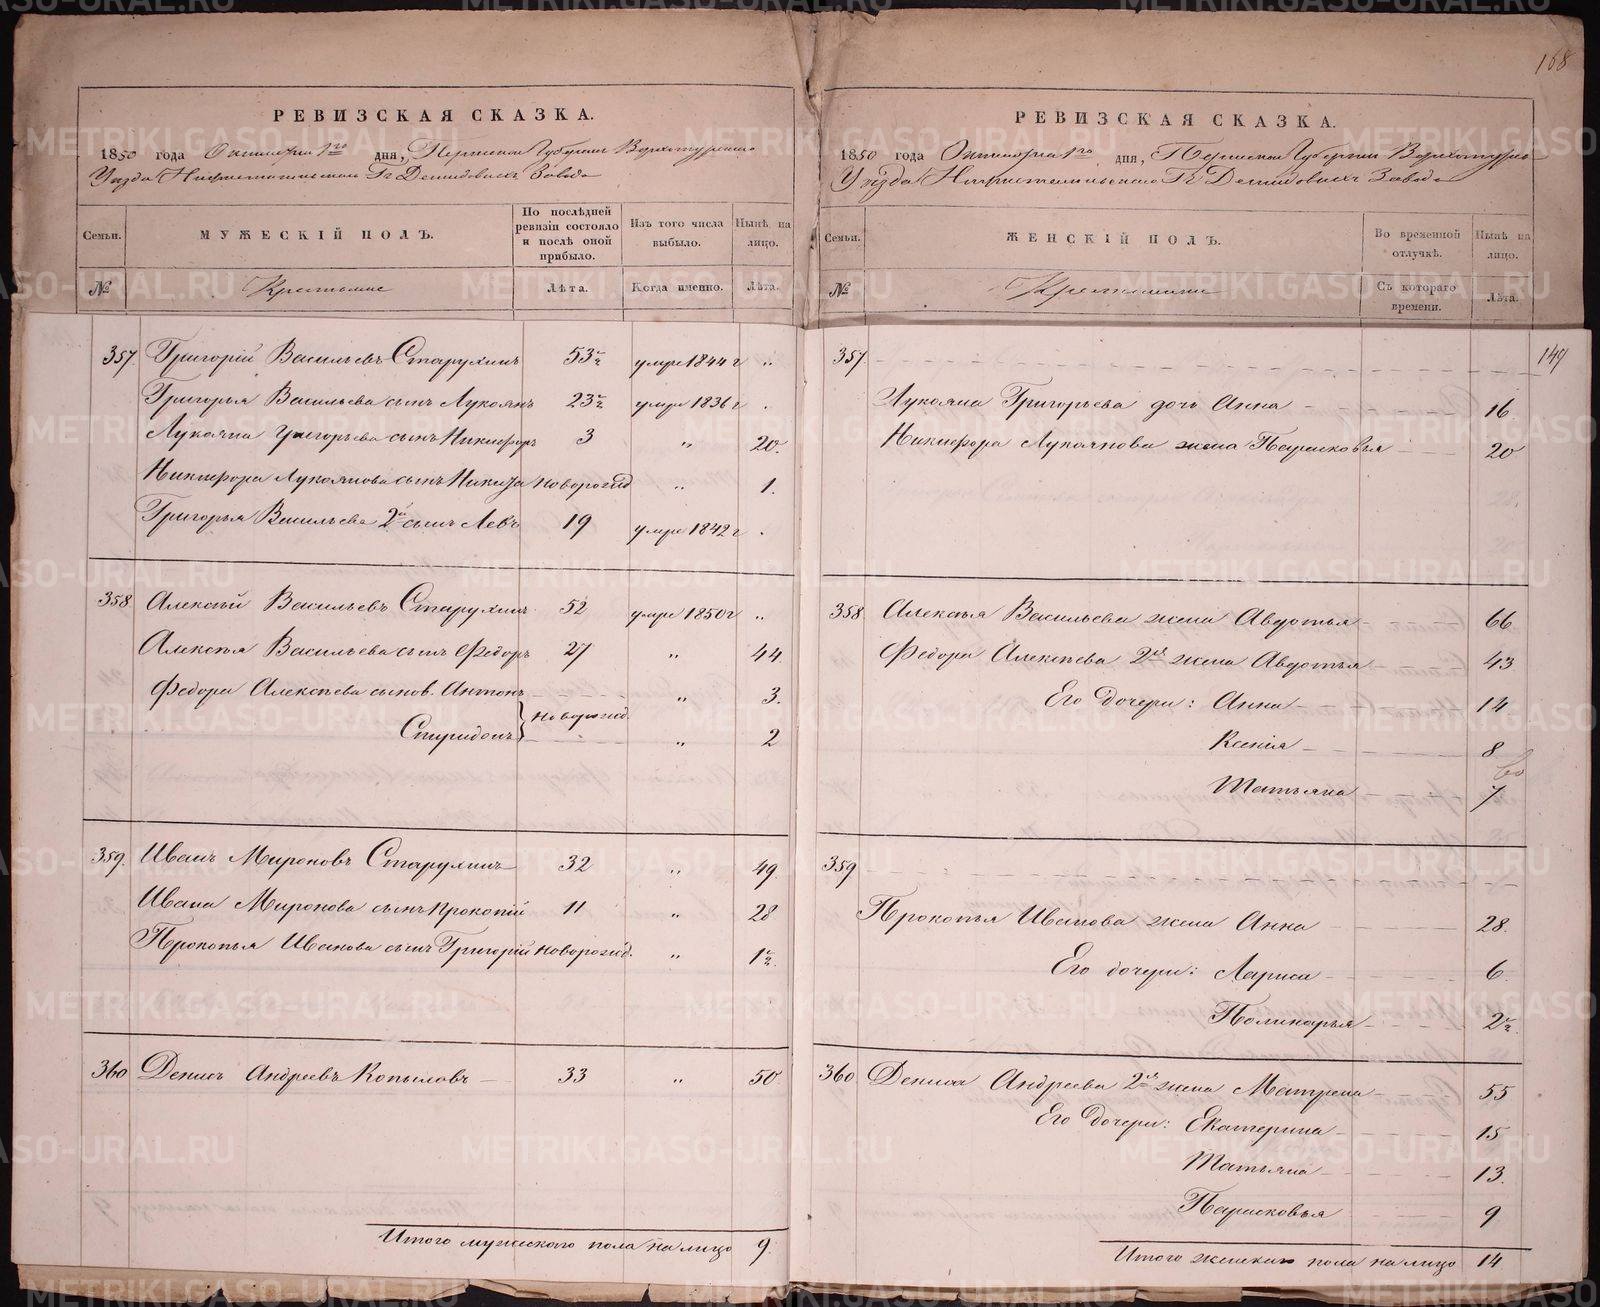 168
РЕВИЗСКАЯ СКАЗКА.
1850 года Октября 1го дня, Пермской Губернии Верхотурскаго
Уѣзда Нижнетагильскаго Гг Демидовыхъ Завода
Семьи.
МУЖЕСКІЙ ПОЛЪ.
По послѣдней ревизіи состояло и послѣ оной прибыло.
Изъ того числа выбыло.
Нынѣ на лицо.
№
Крестьяне
Лѣта.
Когда именно.
Лѣта.
357. Григорій Васильевъ Старухинъ 53 умре 1844 г „
Григорья Васильева сынъ Лукоянъ 23 умре 1836 г .
Лукояна Григорьева сынъ Никифоръ 3 „ 20.
Никифора Лукоянова сынъ Никита новорожд „ 1.
Григорья Васильева 2й сынъ Левъ 19 умре 1842 г .
358 Алексѣй Васильевъ Старухинъ 52 умре 1850 г „
Алексѣя Васильева сынъ Федоръ 27 „ 44
Федора Алексѣева сынов. Антонъ „ 3.
новорожд.
Спиридонъ „ 2
359. Иванъ Мироновъ Старухинъ 32 „ 49.
Ивана Миронова сынъ Прокопій 11 „ 28
Прокопья Иванова сынъ Григорій новорожд. „ 1
360 Денисъ Андреевъ Копыловъ 33 „ 50
Итого мужескаго пола на лицо 9.
РЕВИЗСКАЯ СКАЗКА.
1850 года Октября 1го дня, Пермской Губерніи Верхотурс
Уѣзда Нижнетагильскаго Гг Демидовыхъ Завода
Семьи.
ЖЕНСКІЙ ПОЛЪ.
Во временной отлучкѣ.
Нынѣ на лицо.
№
Крестьянки
Съ котораго времени.
Лѣта.
357. 149
Лукояна Григорьева дочь Анна 16.
Никифора Лукоянова жена Парасковья 20
358. Алексѣя Васильева жена Авдотья 66
Федора Алексѣева 2я жена Авдотья 43
Его дочери: Анна 14
Ксенія 8
Татьяна 7
359
Прокопья Иванова жена Анна 28.
Его дочери: Лариса 6
Поликарья 2
360 Дениса Андреева 2я жена Матрена 55
Его дочери: Екатерина 15
Татьяна 13.
Парасковья 9
Итого женскаго пола на лицо 14
METRIKI.GASO-URAL.RU